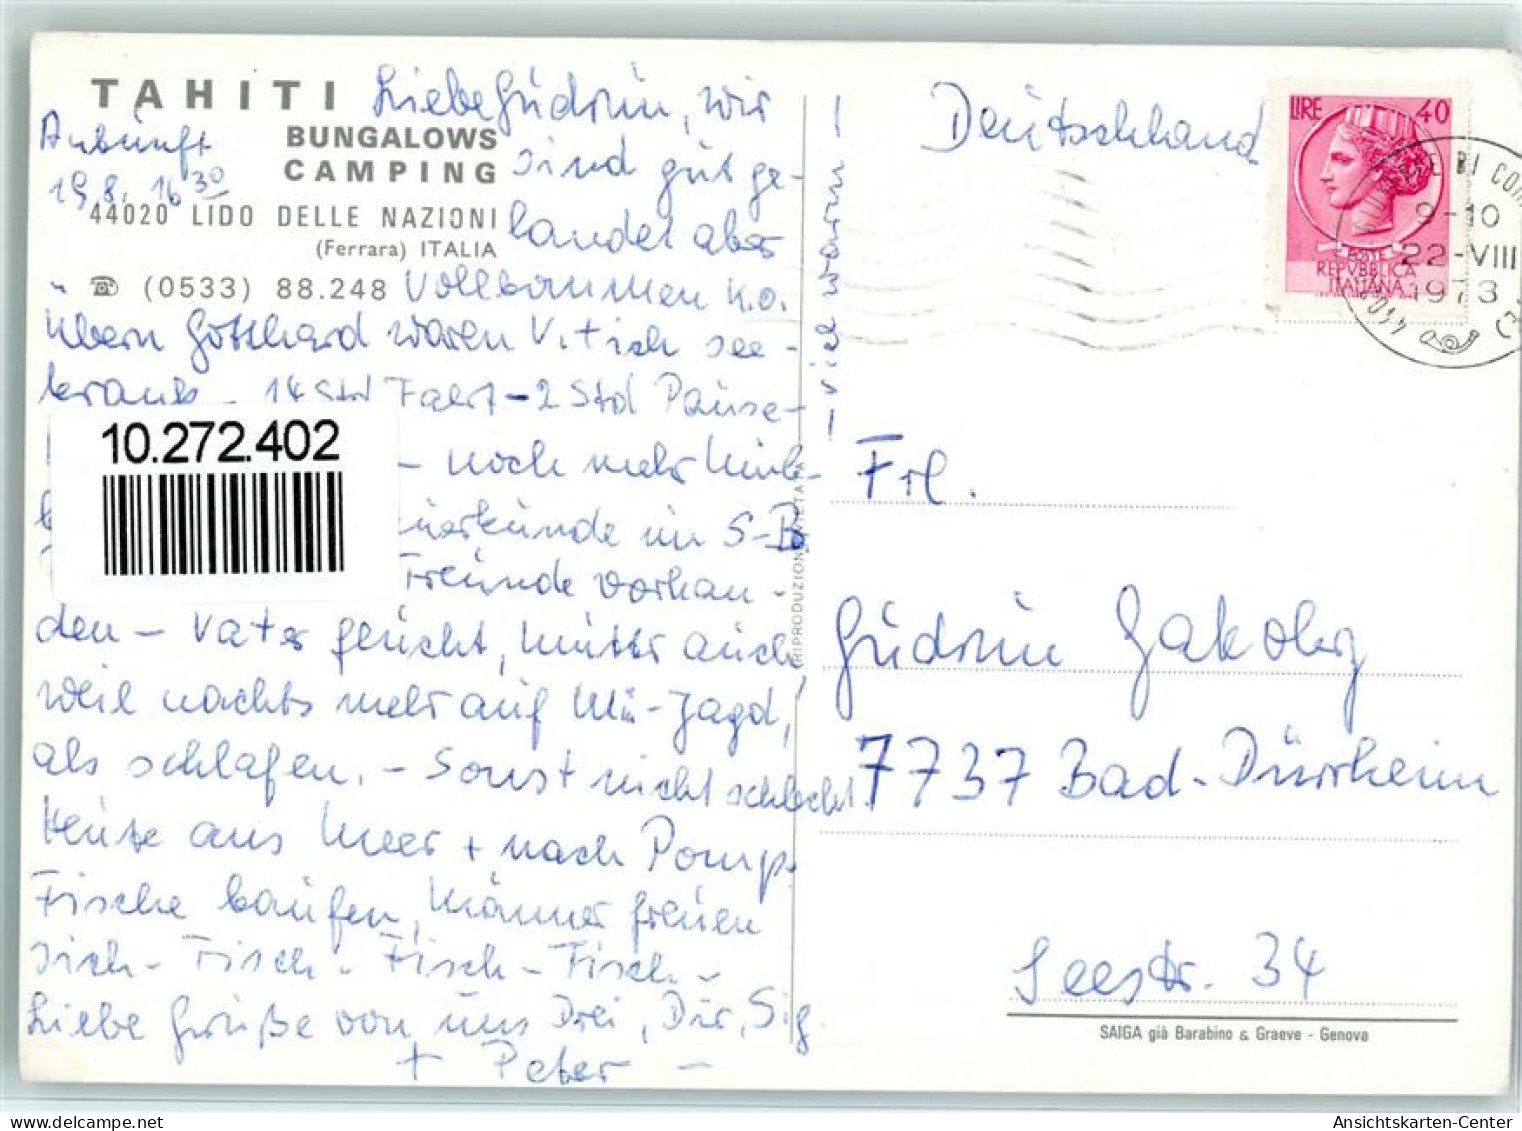 TAHITI
BUNGALOWS
CAMPING
44020 LIDO DELLE NAZIONI
(Ferrara) ITALIA
☎ (0533) 88.248
Ankunft
19.8. 16 30
Liebe Gudrun, wir
sind gut ge-
landet aber
vollkommen k.o.
übern Gotthard waren V. + ich see-
krank - 14 Std Fahrt - 2 Std Pause -
- noch mehr
im S-B
Freunde vorhan-
den - Vater geücht, Mutter auch,
weil nachts mehr auf Mü-Jagd,
als schlafen. - Sonst nicht schlecht.
Heute ans Meer + nach Pomp.
Fische kaufen, Männer freuen
sich - Fisch - Fisch - Fisch -
Liebe Grüße von uns Drei, Dir, Sig.
+ Peter -
- viel warm! -
10.272.402
RIPRODUZIONE VIETATA
Deutschland
LIRE 40
POSTE
REPVBBLICA
ITALIANA
9-10
22-VIII
1973
Frl.
Gudrun Jakoby
7737 Bad-Dürrheim
Seestr. 34
SAIGA già Barabino & Graeve - Genova
Ansichtskarten-Center